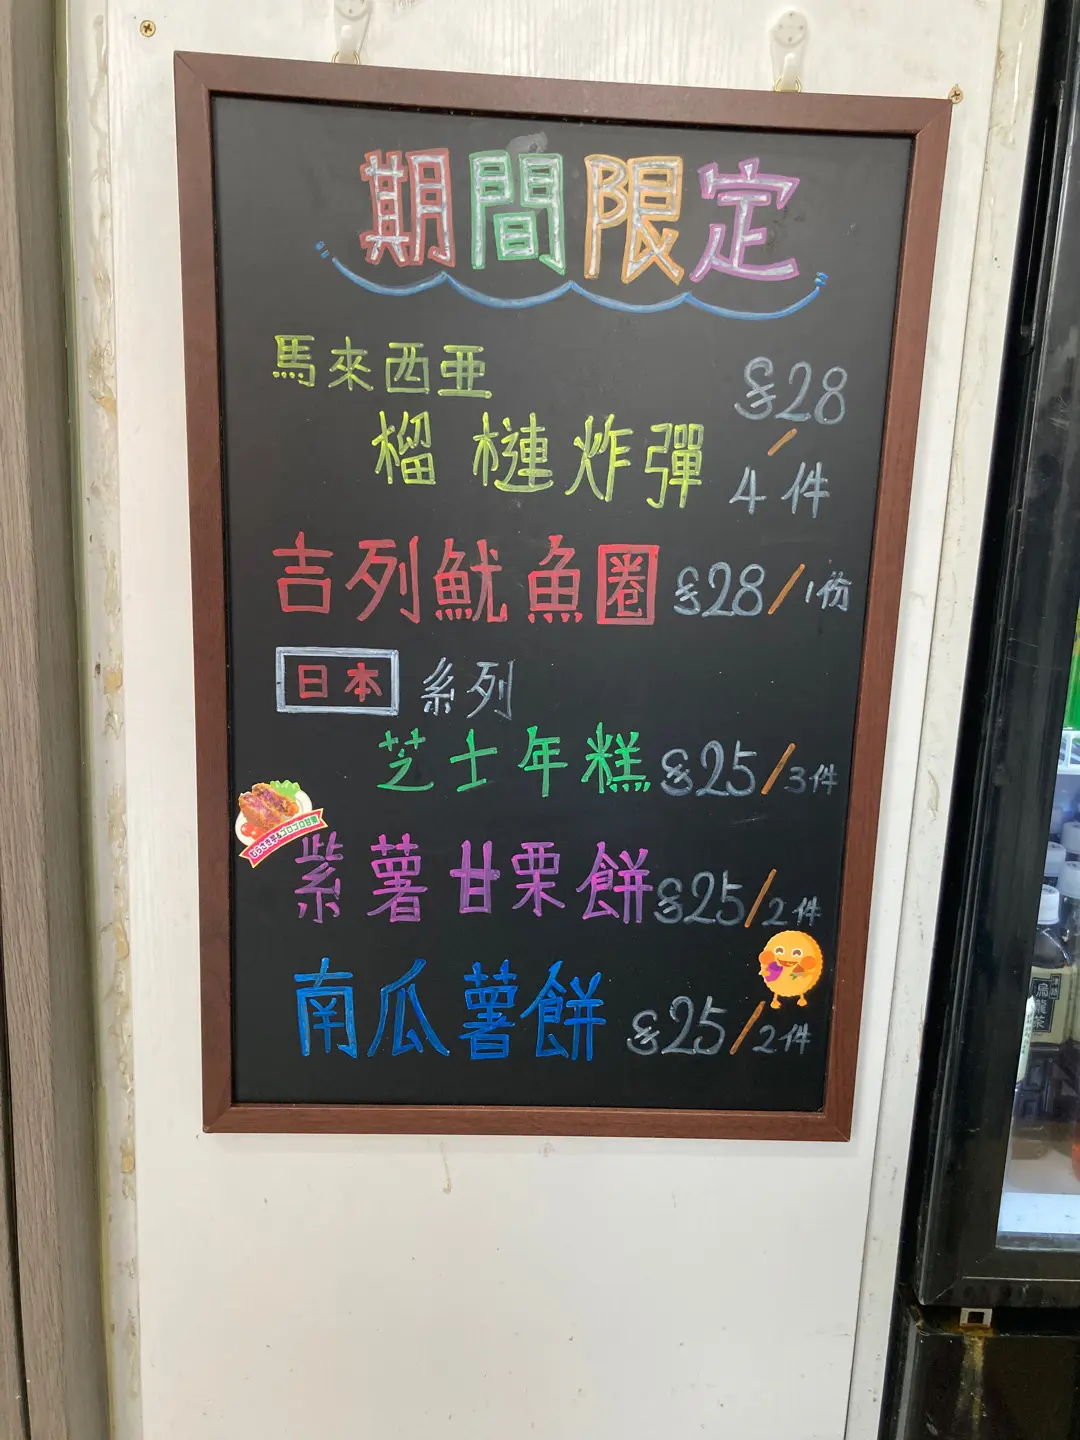 期間限定
馬來西亜
榴槤炸彈
$28
/
4件
吉列魷魚圈 $28/1份
日本 系列
芝士年糕 $25/3件
紫薯甘栗餅 $25/2件
南瓜薯餅 $25/2件
烏龍茶